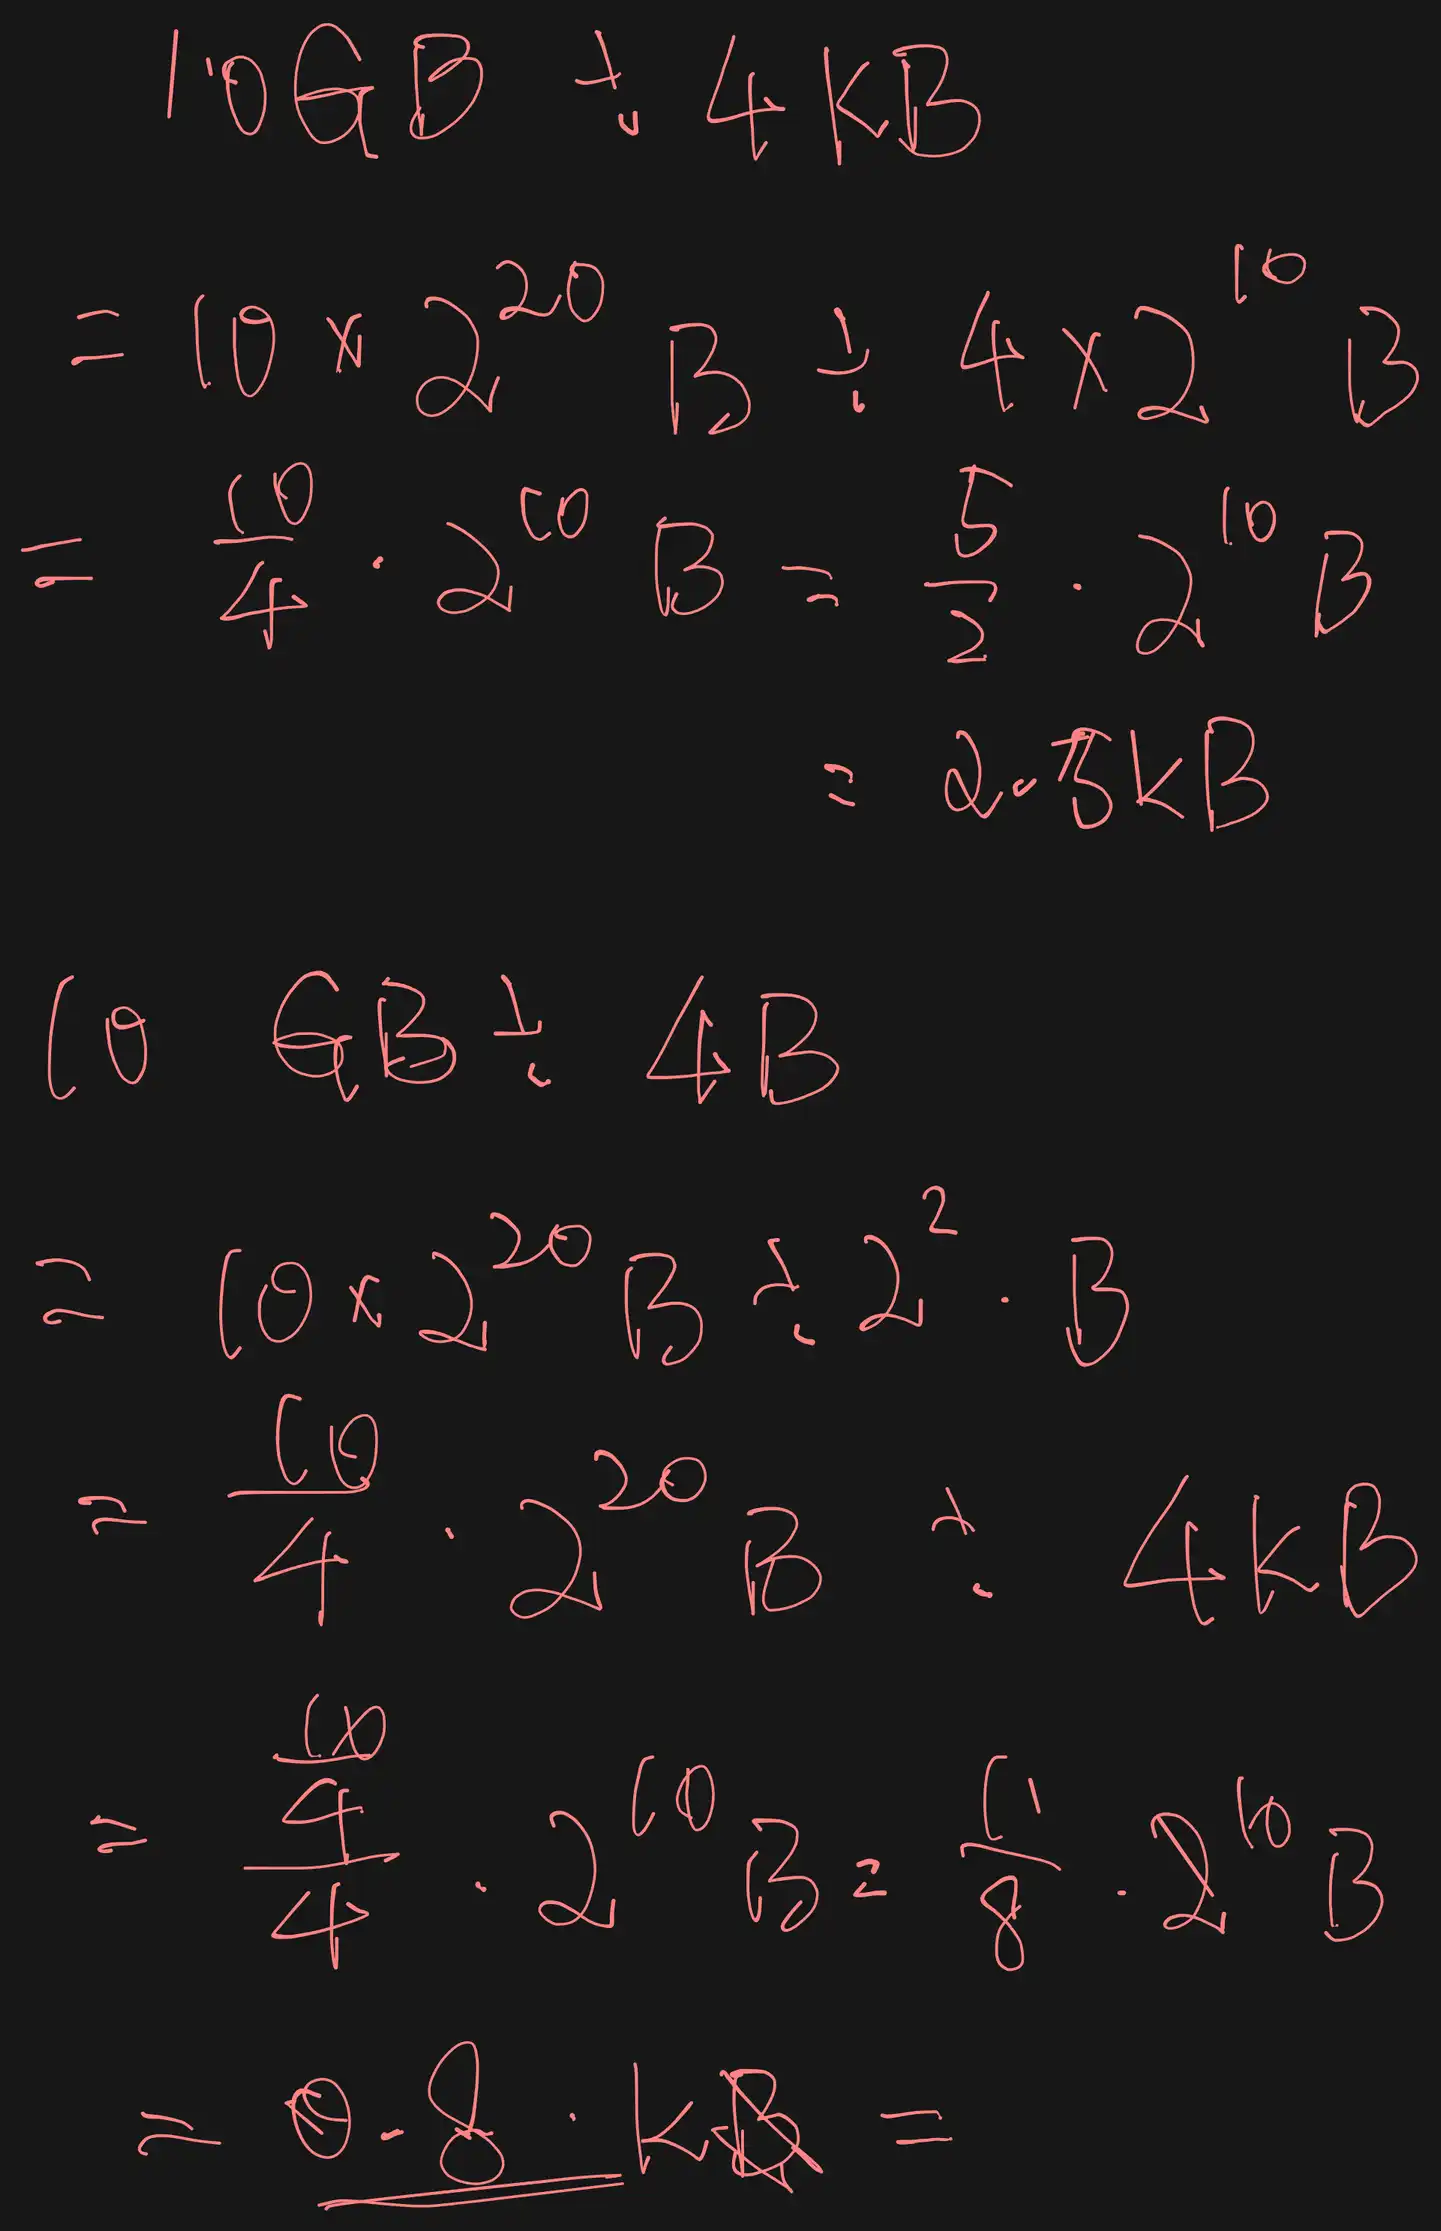 10GB ÷ 4KB
= 10 × 2^20 B ÷ 4 × 2^10 B
= 10/4 · 2^10 B = 5/2 · 2^10 B
= 2.5KB
10 GB ÷ 4B
= 10 × 2^20 B ÷ 2^2 · B
= 10/4 · 2^20 B ÷ 4KB
= 10/4/4 · 2^10 B = 11/8 · 2^10 B
= 0.8 · KB =